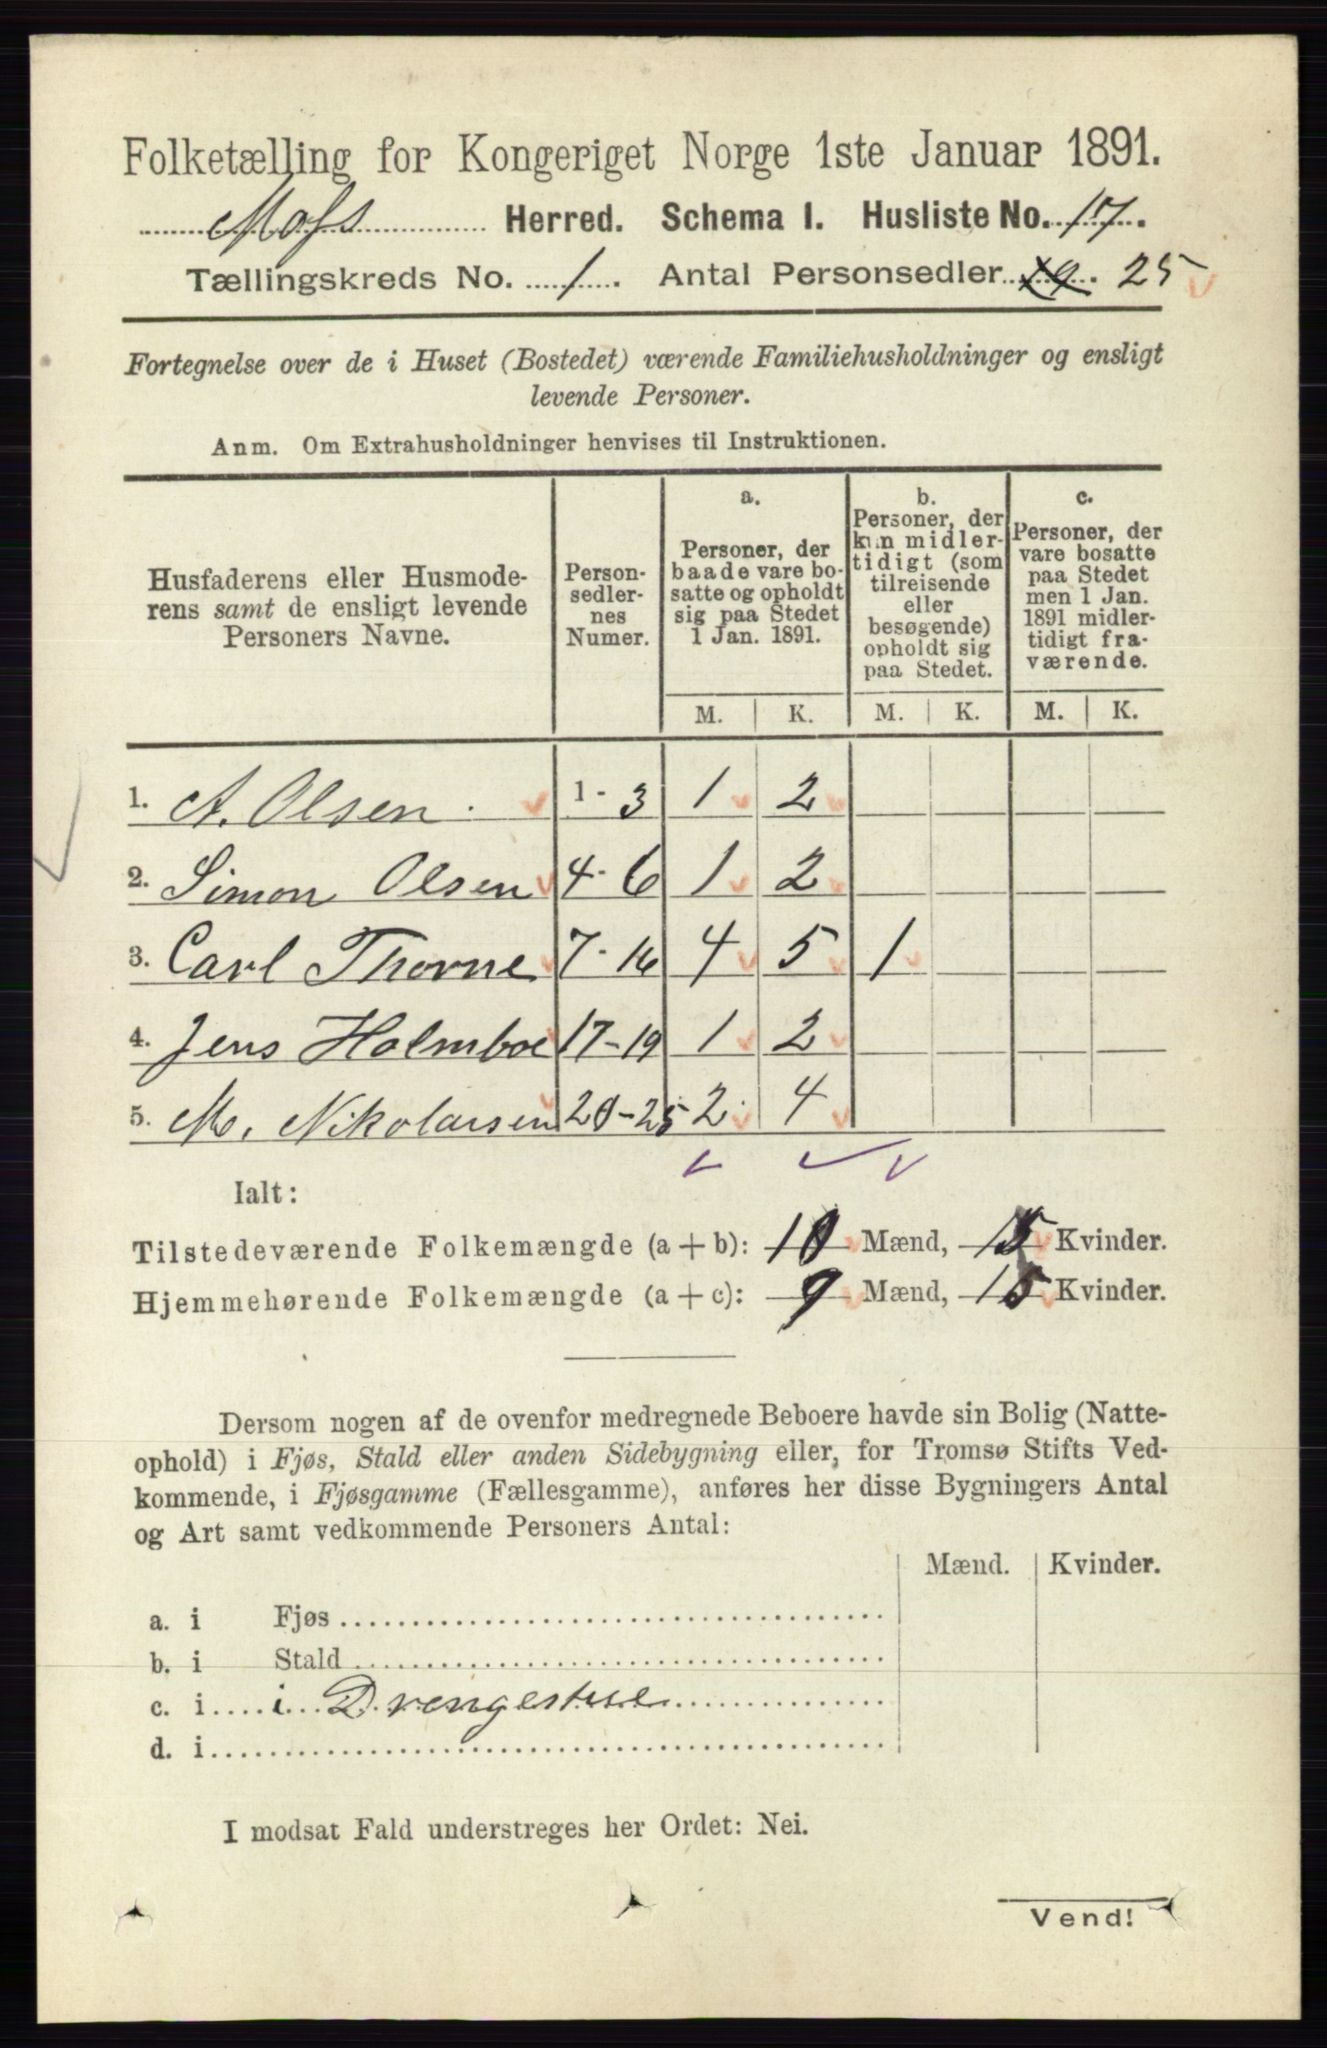 Folketælling for Kongeriget Norge 1ste Januar 1891.
Moss Herred. Schema I. Husliste No. 17.
Tællingskreds No. 1. Antal Personsedler 19. 25
Fortegnelse over de i Huset (Bostedet) værende Familiehusholdninger og ensligt
levende Personer.
Anm. Om Extrahusholdninger henvises til Instruktionen.
Husfaderens eller Husmode-
rens samt de ensligt levende
Personers Navne.
Person-
sedler-
nes
Numer.
a.
Personer, der
baade vare bo-
satte og opholdt
sig paa Stedet
1 Jan. 1891.
b.
Personer, der
kun midler-
tidigt (som
tilreisende
eller
besøgende)
opholdt sig
paa Stedet.
c.
Personer, der
vare bosatte
paa Stedet
men 1 Jan.
1891 midler-
tidigt fra-
værende.
M. K. M. K. M. K.
1. A. Olsen 1-3 1 2
2. Simon Olsen 4-6 1 2
3. Carl Thorne 7-16 4 5 1
4. Jens Holmboe 17-19 1 2
5. M. Nikolaisen 20-25 2 4
Ialt:
Tilstedeværende Folkemængde (a + b): 10 Mænd, 15 Kvinder.
Hjemmehørende Folkemængde (a + c): 9 Mænd, 15 Kvinder.
Dersom nogen af de ovenfor medregnede Beboere havde sin Bolig (Natte-
ophold) i Fjøs, Stald eller anden Sidebygning eller, for Tromsø Stifts Ved-
kommende, i Fjøsgamme (Fællesgamme), anføres her disse Bygningers Antal
og Art samt vedkommende Personers Antal:
Mænd. Kvinder.
a. i Fjøs
b. i Stald
c. i i Drengestue
d. i
I modsat Fald understreges her Ordet: Nei.
Vend!